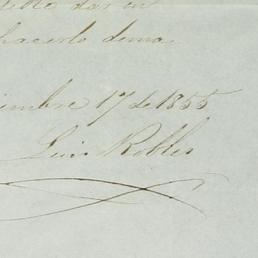 dar en
hacerlo
iembre 17 de 1855
Luis Robles